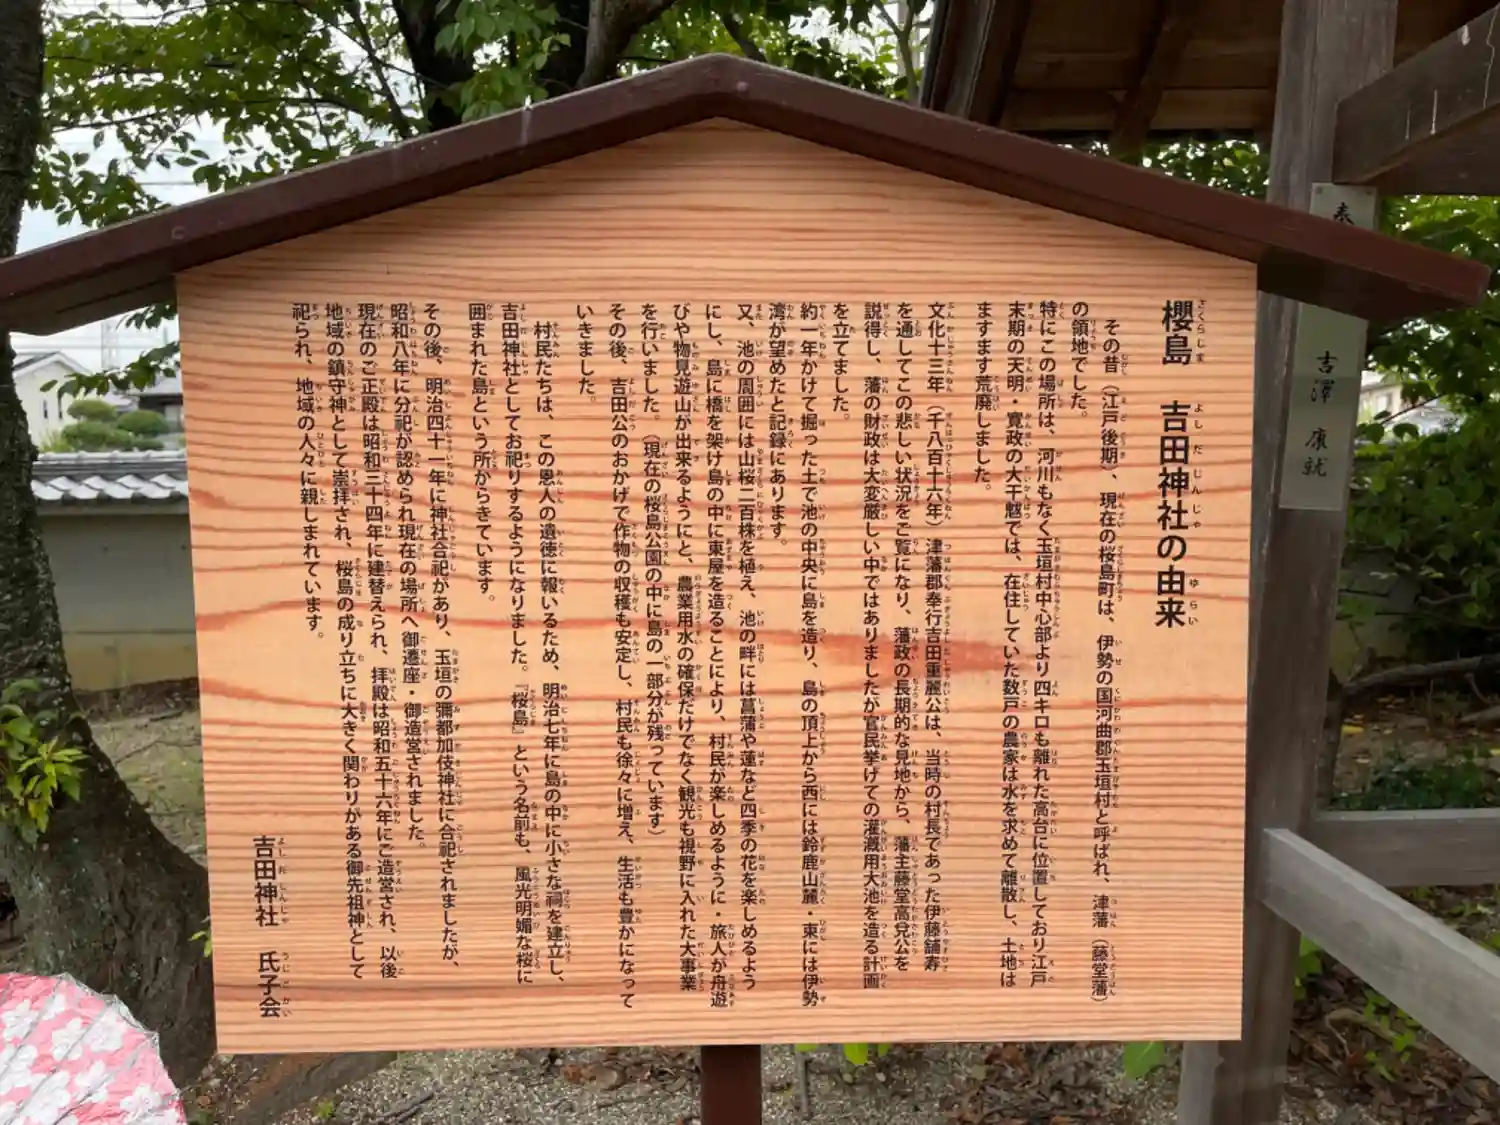 櫻島　吉田神社の由来
その昔（江戸後期）、現在の桜島町は、伊勢の国河曲郡玉垣村と呼ばれ、津藩（藤堂藩）
の領地でした。
特にこの場所は、河川もなく玉垣村中心部より四キロも離れた高台に位置しており江戸
末期の天明・寛政の大干魃では、在住していた数戸の農家は水を求めて離散し、土地は
ますます荒廃しました。
文化十三年（千八百十六年）津藩郡奉行吉田重麗公は、当時の村長であった伊藤舗寿
を通してこの悲しい状況をご覧になり、藩政の長期的な見地から、藩主藤堂高兌公を
説得し、藩の財政は大変厳しい中ではありましたが官民挙げての灌漑用大池を造る計画
を立てました。
約一年かけて掘った土で池の中央に島を造り、島の頂上から西には鈴鹿山麓・東には伊勢
湾が望めたと記録にあります。
又、池の周囲には山桜二百株を植え、池の畔には菖蒲や蓮など四季の花を楽しめるよう
にし、島に橋を架け島の中に東屋を造ることにより、村民が楽しめるように・旅人が舟遊
びや物見遊山が出来るようにと、農業用水の確保だけでなく観光も視野に入れた大事業
を行いました。（現在の桜島公園の中に島の一部分が残っています）
その後、吉田公のおかげで作物の収穫も安定し、村民も徐々に増え、生活も豊かになって
いきました。
村民たちは、この恩人の遺徳に報いるため、明治七年に島の中に小さな祠を建立し、
吉田神社としてお祀りするようになりました。『桜島』という名前も、風光明媚な桜に
囲まれた島という所からきています。
その後、明治四十一年に神社合祀があり、玉垣の彌都加伎神社に合祀されましたが、
昭和八年に分祀が認められ現在の場所へ御遷座・御造営されました。
現在のご正殿は昭和三十四年に建替えられ、拝殿は昭和五十六年にご造営され、以後
地域の鎮守神として崇拝され、桜島の成り立ちに大きく関わりがある御先祖神として
祀られ、地域の人々に親しまれています。
吉田神社　氏子会
吉澤康就